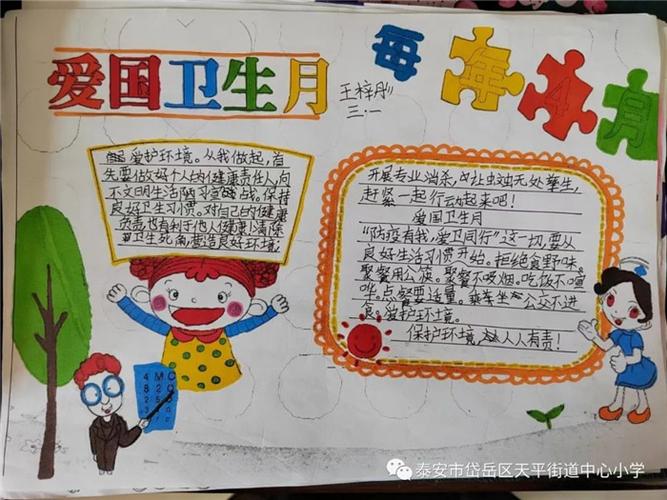 爱国卫生月
每年4月
王梓彤
三.一
爱护环境。从我做起,首
先要做好个人的健康责任人,向
不文明生活陋习宣战。保持
良好卫生习惯。对自己的健康
负责也有利于他人健康清除
卫生死角营造良好环境
开展专业消杀,让虫蚊无处孳生,
赶紧一起行动起来吧!
爱国卫生月
“防疫有我,爱卫同行”这一切,要从
良好生活习惯开始。拒绝食野味。
聚餐用公筷。聚餐不吸烟。吃饭不喧
哗。点餐要适量。乘车坐公交不进
食。爱护环境。
保护环境,人人有责!
泰安市岱岳区天平街道中心小学